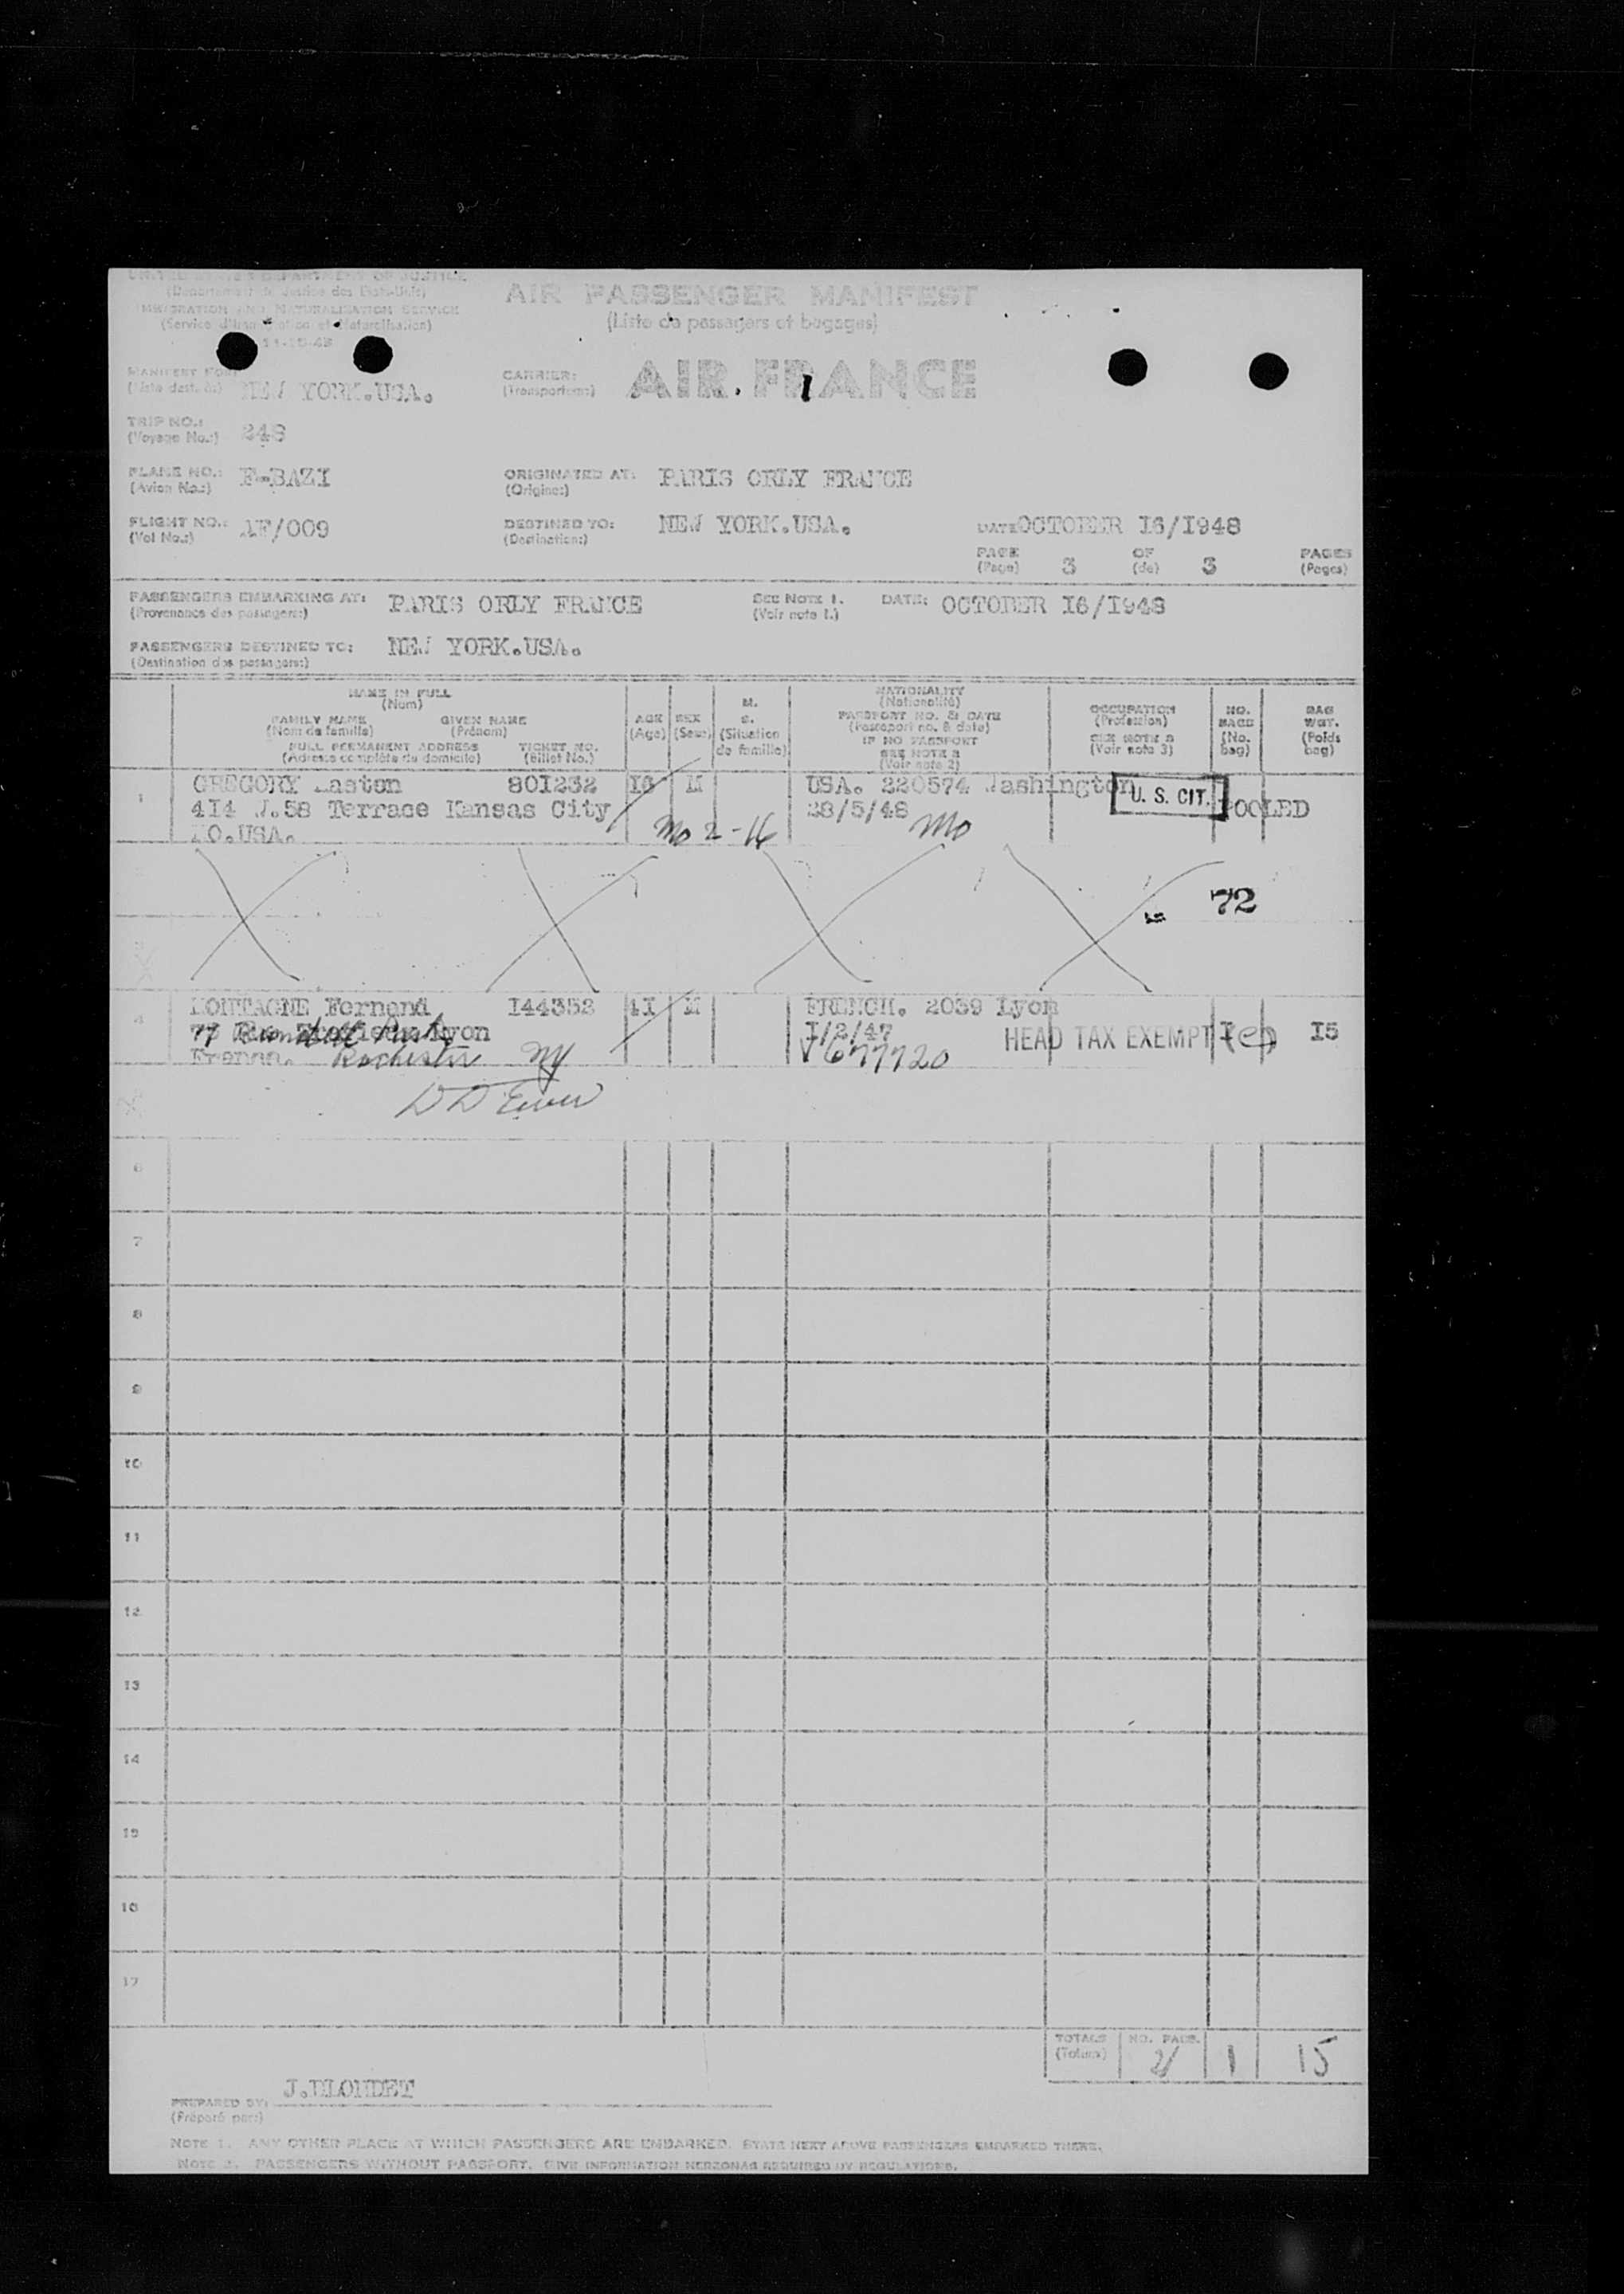 UNITED STATES DEPARTMENT OF JUSTICE
(Département de Justice des Etats-Unis)
IMMIGRATION AND NATURALISATION SERVICE
AIR PASSENGER MANIFEST
(Liste de passagers et bagages)
MANIFEST FOR:
(Liste dest. à:) NEW YORK.USA.
CARRIER:
(Transporteur:)
AIR FRANCE
TRIP NO.:
(Voyage No.:) 248
PLANE NO.:
(Avion No.:) F-BAZI
ORIGINATED AT:
(Origine:) PARIS ORLY FRANCE
FLIGHT NO.:
(Vol No.:) AF/009
DESTINED TO:
(Destination:) NEW YORK.USA.
DATE OCTOBER I6/I948
PAGE 3 OF 3 PAGES
(Page) (de) (Pages)
PASSENGERS EMBARKING AT: PARIS ORLY FRANCE
(Provenance des passagers:)
SEE NOTE 1.
(Voir note 1.)
DATE: OCTOBER I6/I948
PASSENGERS DESTINED TO: NEW YORK.USA.
(Destination des passagers:)
NAME IN FULL
(Nom)
FAMILY NAME GIVEN NAME
(Nom de famille) (Prénom)
FULL PERMANENT ADDRESS TICKET NO.
(Adresse complète du domicile) (Billet No.)
AGE
(Age)
SEX
(Sexe)
M.
S.
(Situation
de famille)
NATIONALITY
(Nationalité)
PASSPORT NO. & DATE
(Passeport no. & date)
IF NO PASSPORT
SEE NOTE 2
(Voir note 2)
OCCUPATION
(Profession)
SEE NOTE 3
(Voir note 3)
NO.
BAGS
(No.
bag)
BAG
WGT.
(Poids
bag)
1 GREGORY 80I232 I6 M USA. 220574 Washington
4I4 W.58 Terrace Kansas City 28/5/48 U. S. CIT. POOLED
MO.USA. Mo 2-16 Mo
72
4 MONTAGNE Fernand I44352 4I M FRENCH. 2039 Lyon
77 Lyon I/2/47 HEAD TAX EXEMPT I I5
France. Rochester NY V 677720
6
7
8
9
10
11
12
13
14
15
16
17
TOTALS NO. PASS.
(Totaux) 2 1 15
J.BLONDET
PREPARED BY:
(Préparé par:)
NOTE 1. ANY OTHER PLACE AT WHICH PASSENGERS ARE EMBARKED. STATE NEXT ABOVE PASSENGERS EMBARKED THERE.
NOTE 2. PASSENGERS WITHOUT PASSPORT. GIVE INFORMATION REQUIRED BY REGULATIONS.